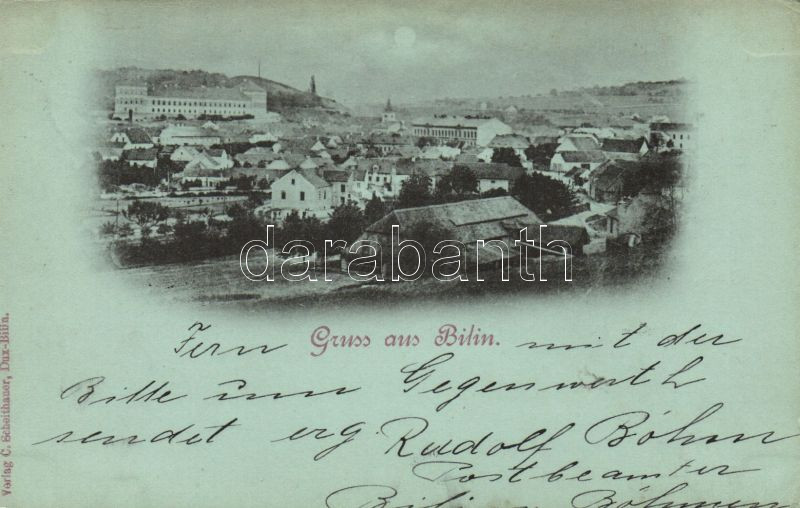 darabanth
Gruss aus Bilin.
Fern mit der
Bitte um Gegenwerth
sendet erg Rudolf Böhm
Postbeamter
Bilin Böhmen
Verlag C. Scheithauer, Dux-Bilin.